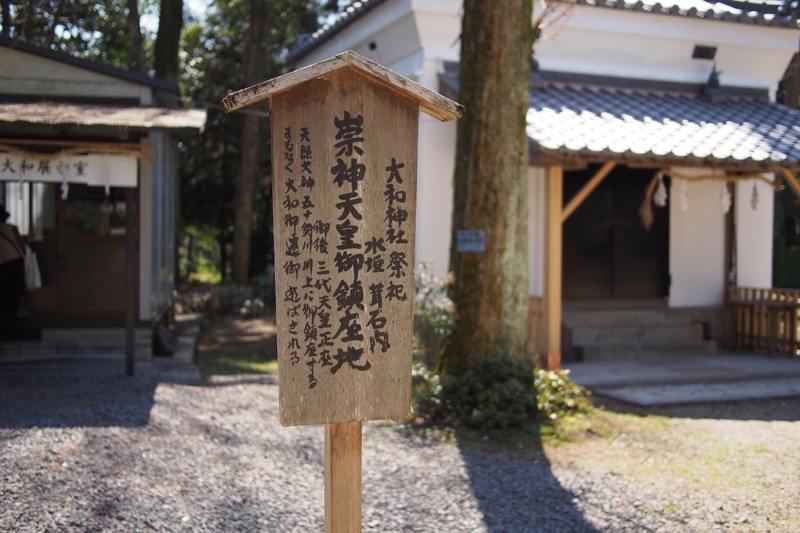 大和神社祭祀
水垣茸石内
崇神天皇御鎮座地
御後三代天皇正座
天照大神五十鈴川川上に御鎮座する
まもなく大和御還御遊ばされる
大和展
室